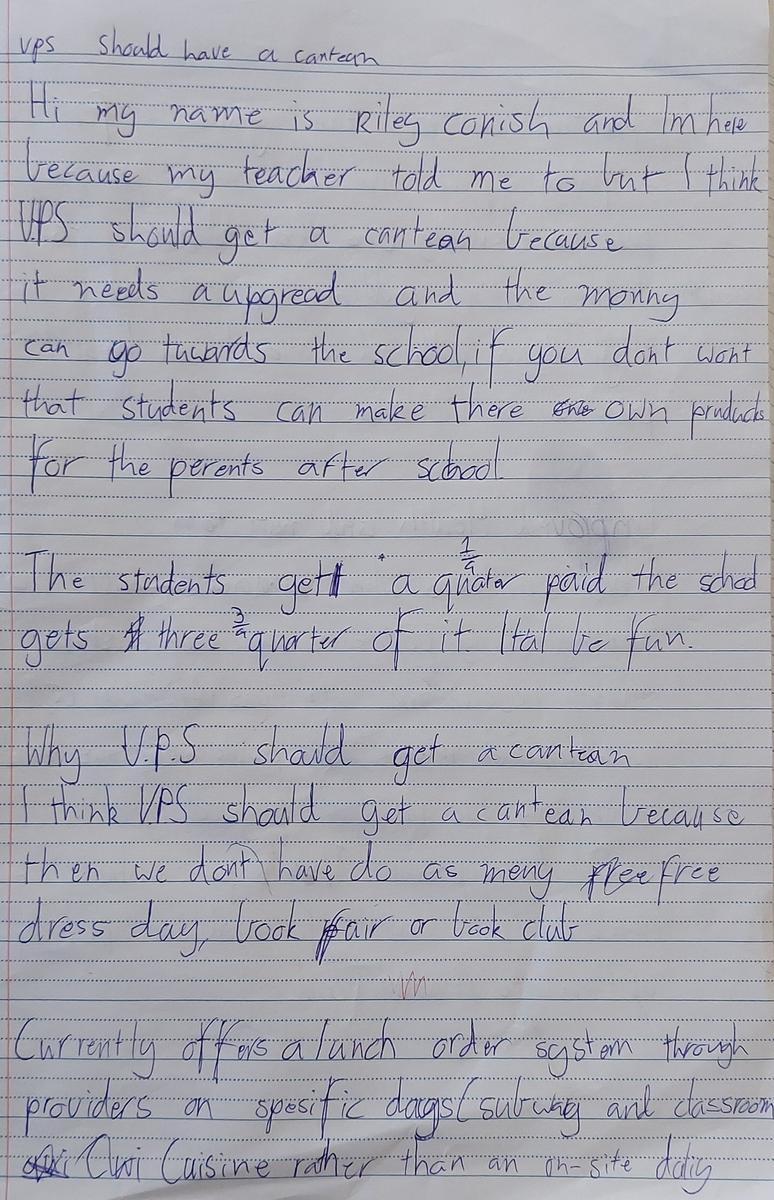 vps should have a cantean
Hi my name is Riley conish and Im here
because my teacher told me to but I think
V.P.S should get a cantean because
it needs a upgread and the monny
can go tuwards the school, if you dont wont
that students can make there own products
for the perents after school
1/4
The students get a quater paid the school
gets three 3/4 quarter of it Ital be fun.
Why V.P.S should get a cantean
I think V.P.S should get a cantean because
then we dont have do as meny free
dress day, book fair or book club
Currently offers a lunch order system through
providers on spesific days (subway and classroom
Cuisine rather than an on-site daliy